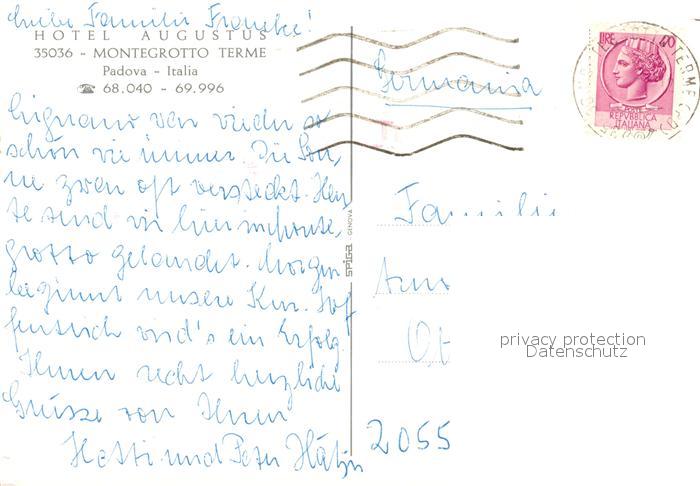 Liebe Familie Francke!
HOTEL AUGUSTUS
35036 - MONTEGROTTO TERME
Padova - Italia
☎ 68.040 - 69.996
Lignano war wieder so
schön wie immer. Die Son-
ne zwar oft versteckt. Heu-
te sind wir hier in Monte-
grotto gelandet. Morgen
beginnt unsere Kur. Hof-
fentlich wird's ein Erfolg.
Ihnen recht herzliche
Grüsse von Ihnen
Hetti und Peter
Germania
Familie
2055
SPIGA GENOVA
LIRE 40
POSTE
REPVBBLICA
ITALIANA
TERME
privacy protection
Datenschutz